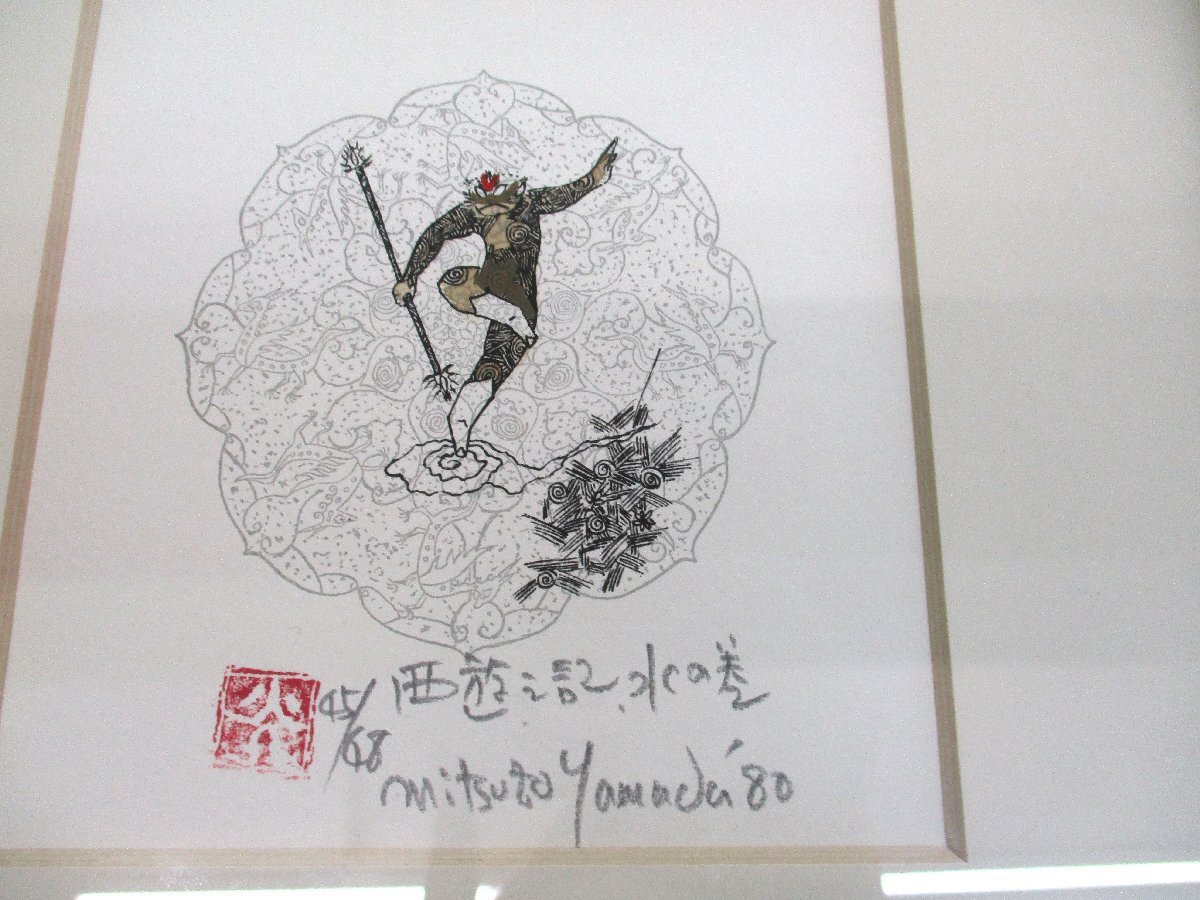 45/68
西遊記 水の巻
Mitsuzo Yamada '80